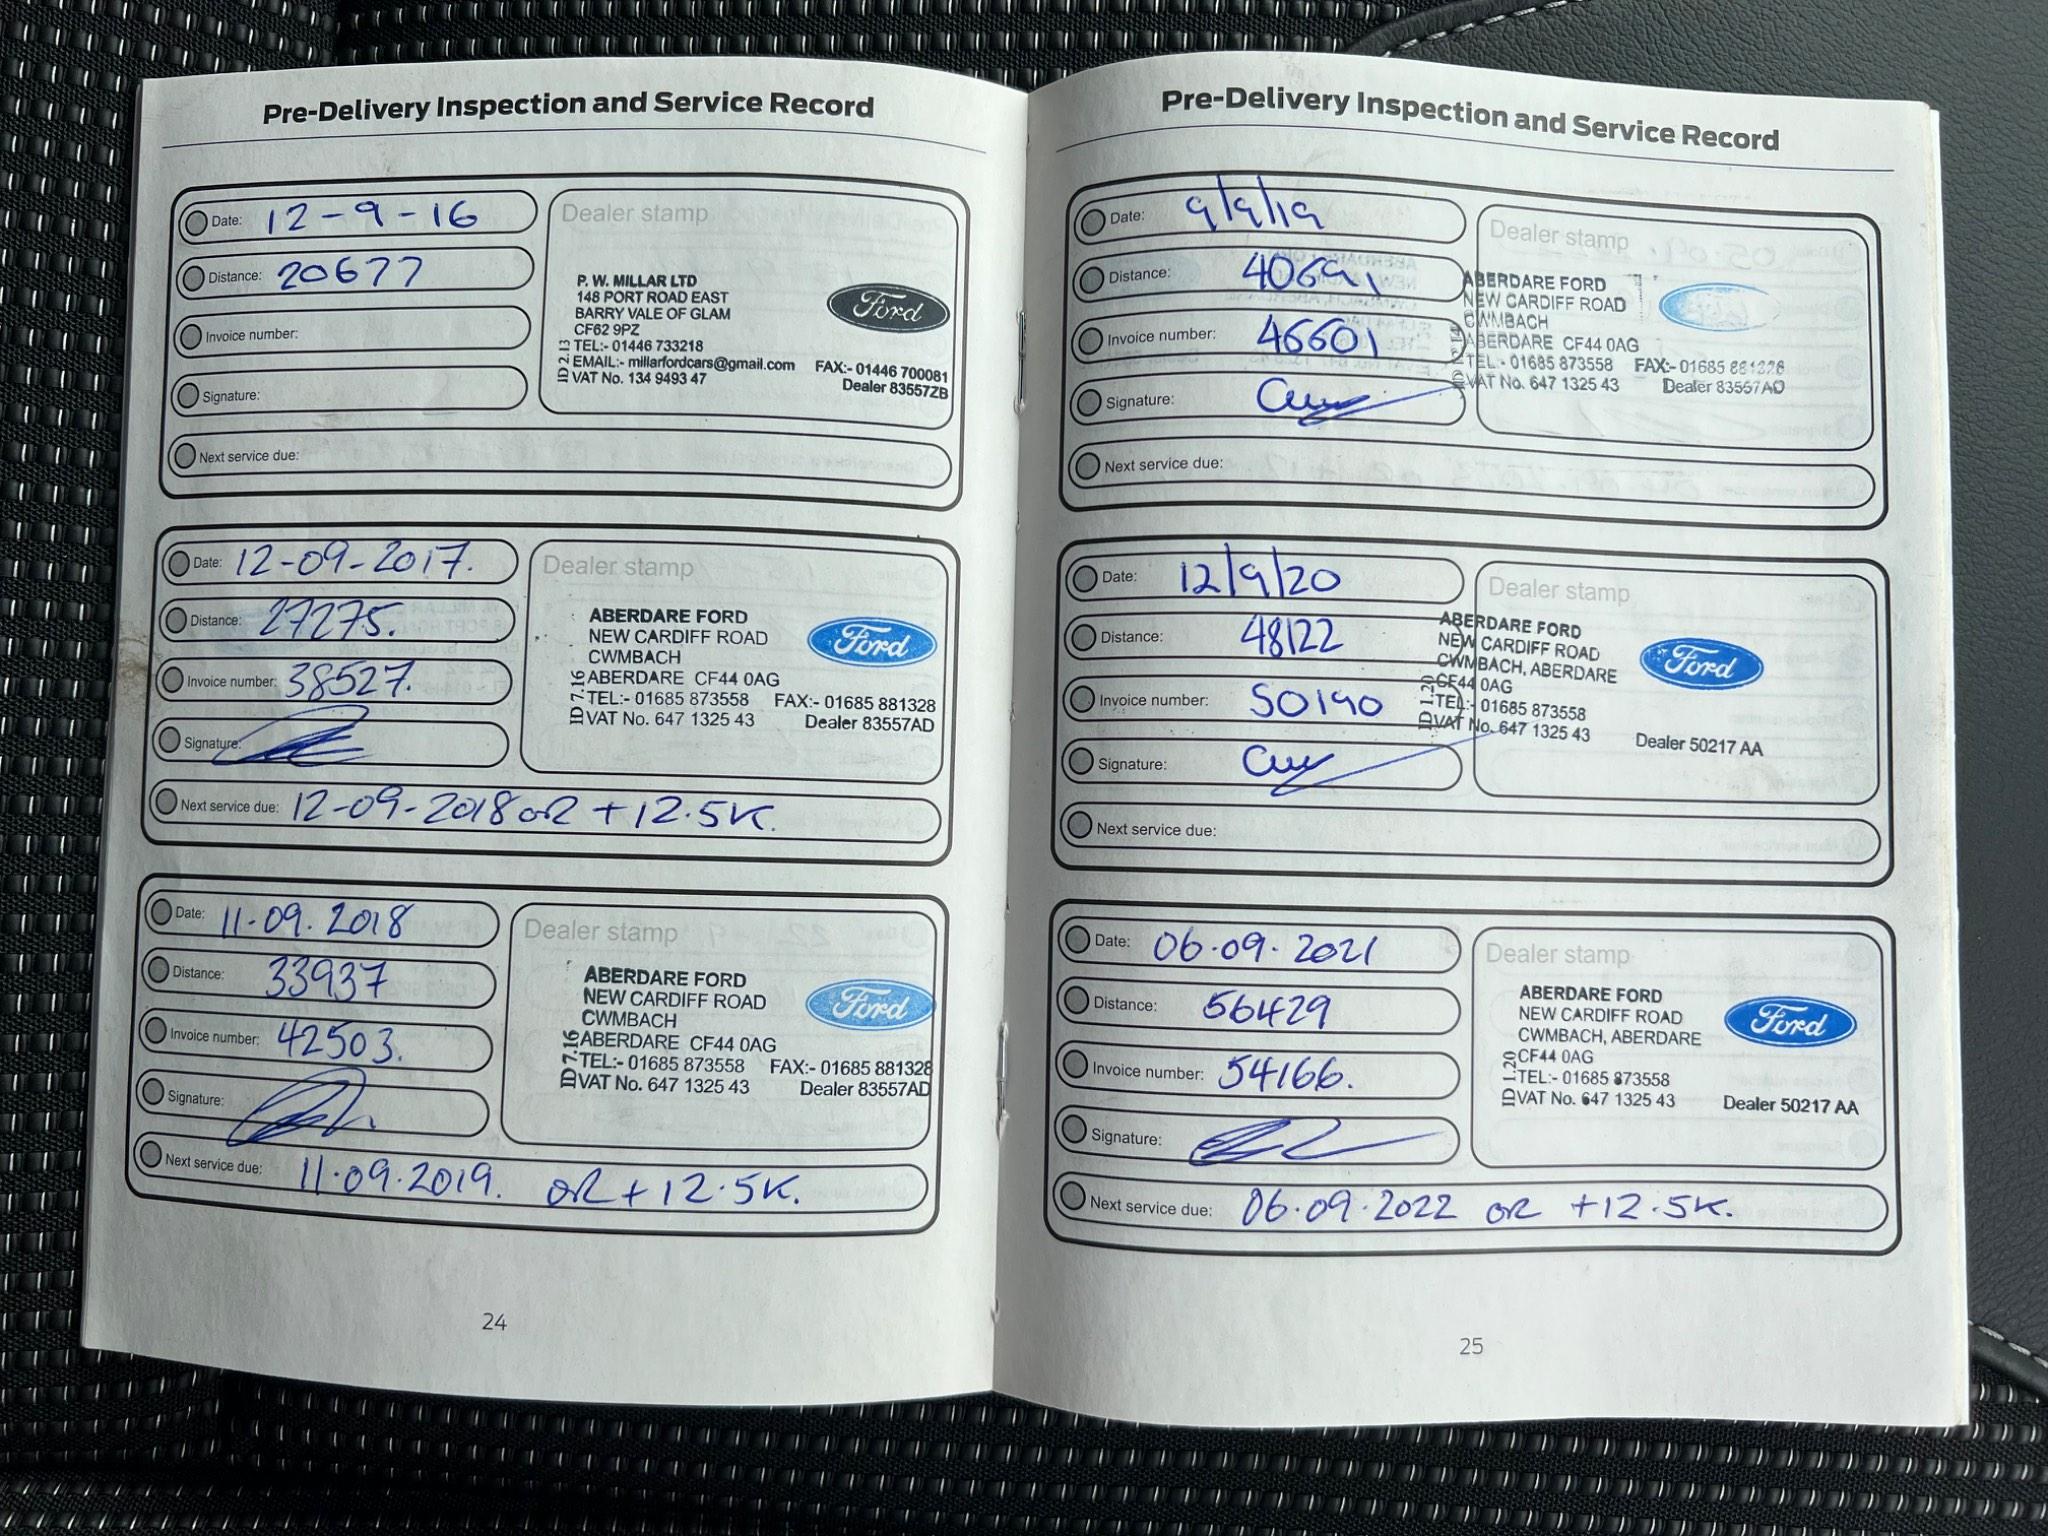 Pre-Delivery Inspection and Service Record
Date: 12-9-16
Distance: 20677
Invoice number:
Signature:
Next service due:
Dealer stamp
P. W. MILLAR LTD
148 PORT ROAD EAST
BARRY VALE OF GLAM
CF62 9PZ
TEL:- 01446 733218
EMAIL:- millarfordcars@gmail.com FAX:- 01446 700081
VAT No. 134 9493 47 Dealer 83557ZB
ID 2.13
Ford
Date: 12-09-2017.
Distance: 27275.
Invoice number: 38527.
Signature:
Next service due: 12-09-2018 OR +12.5K.
Dealer stamp
ABERDARE FORD
NEW CARDIFF ROAD
CWMBACH
ABERDARE CF44 0AG
TEL:- 01685 873558 FAX:- 01685 881328
VAT No. 647 1325 43 Dealer 83557AD
ID 7.16
Ford
Date: 11.09.2018
Distance: 33937
Invoice number: 42503.
Signature:
Next service due: 11.09.2019. OR +12.5K.
Dealer stamp
ABERDARE FORD
NEW CARDIFF ROAD
CWMBACH
ABERDARE CF44 0AG
TEL:- 01685 873558 FAX:- 01685 881328
VAT No. 647 1325 43 Dealer 83557AD
ID 7.16
Ford
24
Pre-Delivery Inspection and Service Record
Date: 9/9/19
Distance: 40691
Invoice number: 46601
Signature:
Next service due:
Dealer stamp
ABERDARE FORD
NEW CARDIFF ROAD
CWMBACH
ABERDARE CF44 0AG
TEL:- 01685 873558 FAX:- 01685 881328
VAT No. 647 1325 43 Dealer 83557AD
Date: 12/9/20
Distance: 48122
Invoice number: 50190
Signature:
Next service due:
Dealer stamp
ABERDARE FORD
NEW CARDIFF ROAD
CWMBACH, ABERDARE
CF44 0AG
TEL:- 01685 873558
VAT No. 647 1325 43 Dealer 50217 AA
ID 1.20
Ford
Date: 06.09.2021
Distance: 56429
Invoice number: 54166.
Signature:
Next service due: 06.09.2022 OR +12.5K.
Dealer stamp
ABERDARE FORD
NEW CARDIFF ROAD
CWMBACH, ABERDARE
CF44 0AG
TEL:- 01685 873558
VAT No. 647 1325 43 Dealer 50217 AA
ID 1.20
Ford
25